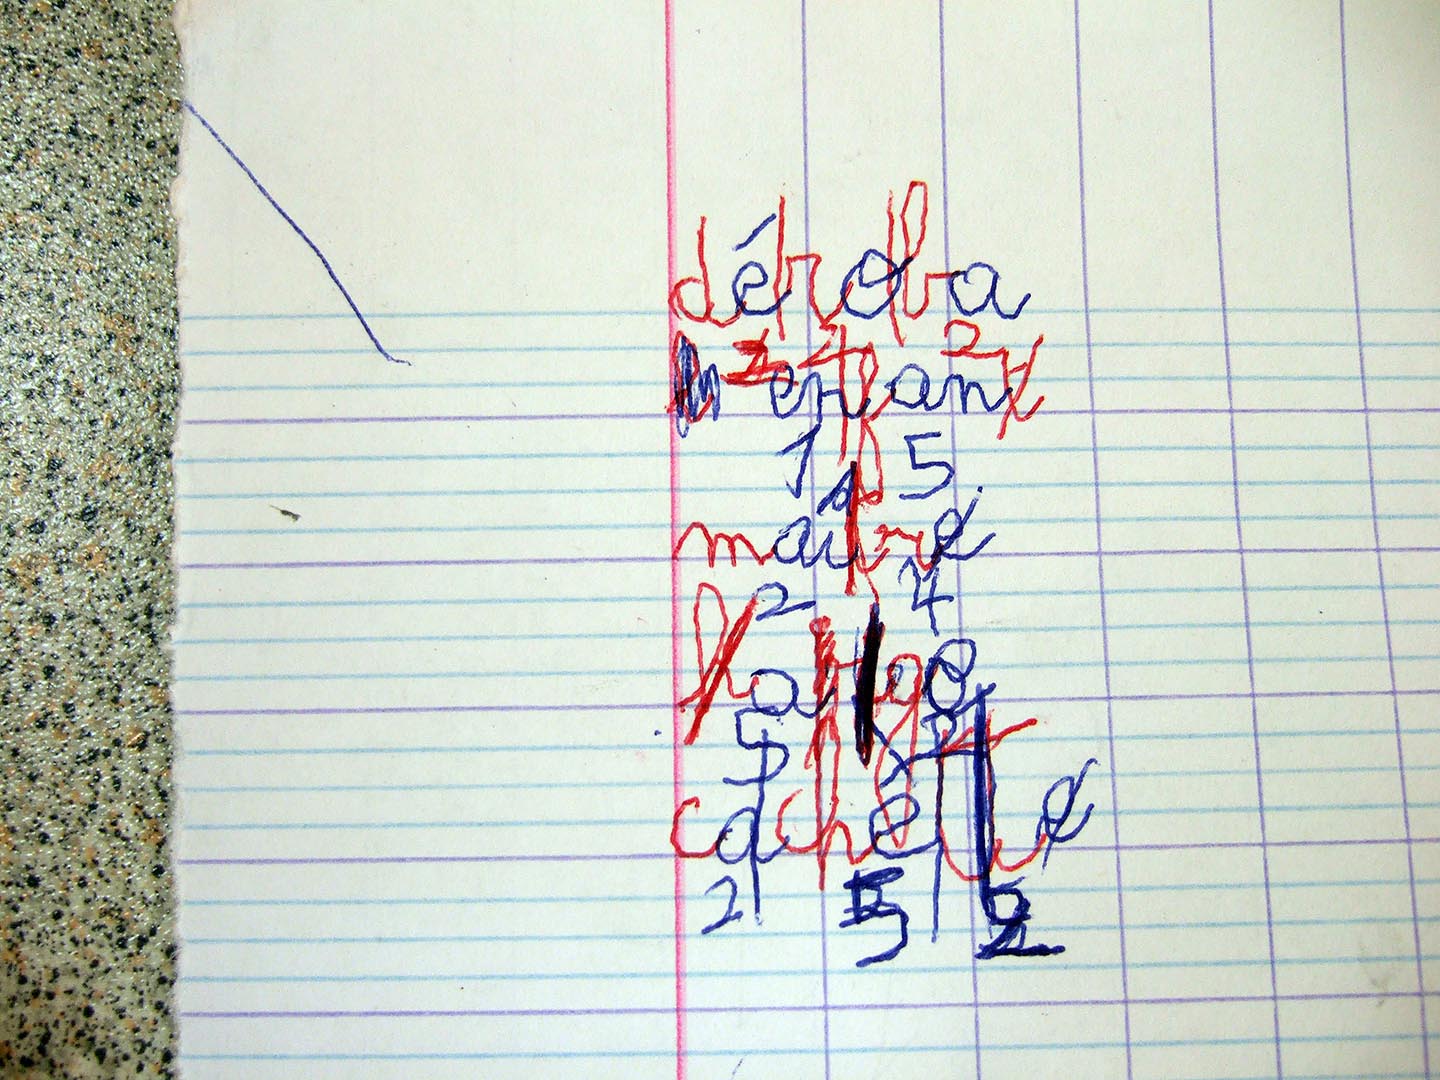 déroba
2 4 2
enfant
1 5
maître
2 4
5 3
cachette
2 5 2